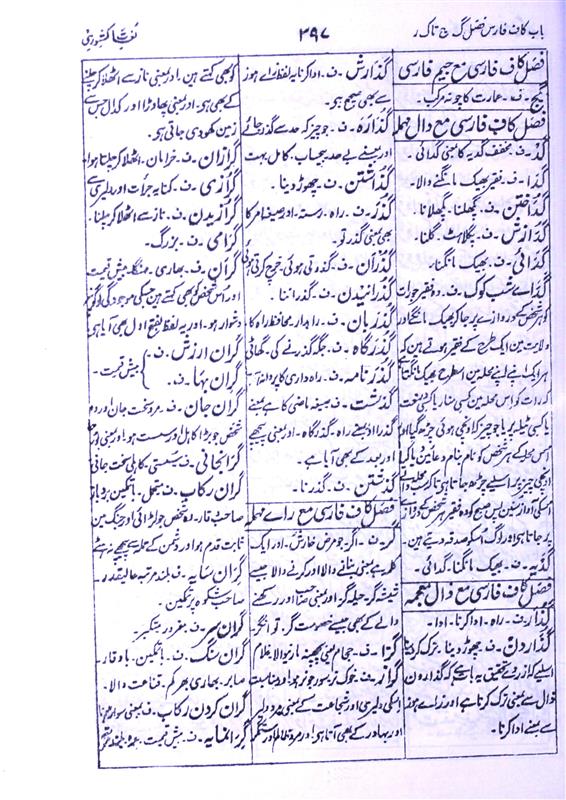 باب کاف فارس فصل گ ج تاک ر
۳۹۷
لغات کشوری
فصل کاف فارسی مع جیم فارسی
گچ ۔ ف ۔ عمارت کا چونہ مرکب ۔
فصل کاف فارسی مع دال مہملہ
گد ۔ ف ۔ مخفف گدیہ کا بمعنی گدائی ۔
گدا ۔ ف ۔ فقیر بھیک مانگنے والا ۔
گداختن ۔ ف ۔ گھلنا ۔ گھلانا ۔
گدازش ۔ ف ۔ پگلاہٹ ۔ گلنا ۔
گدائی ۔ ف ۔ بھیک مانگنا ۔
گداے شب کوک ۔ ف ۔ وہ فقیر جو رات
کو ہر شخص کے دروازے پر جاکر بھیک مانگے اور
ولایت مین ایک طرح کے فقیر ہوتے ہین کہ
ہر ایک اپنے اپنے محلہ مین اسطرح بھیک مانگتا ہے
کہ رات کو اس محلہ مین کسی منار یا کسی درخت
یا کسی ٹیلہ پر یا جو چیز کہ اونچی ہوئی چڑھ گیا اور
اس محلہ کے ہر شخص کو نام بنام دعائین دیا کیا
اونچی چیز پر اسلیے چڑھ جاتا ہے تاکہ محلہ والے
اسکی آواز سنین پس صبح کو وہ فقیر ہر شخص کے دروازے
پر جاتا ہے اور لوگ اسکو صدقہ دیتے ہین ۔
گدیہ ۔ ف ۔ بھیک مانگنا ۔ گدائی ۔
فصل کاف فارسی مع ذال معجمہ
گذار ۔ ف ۔ راہ ۔ ادا کرنا ۔ ادا ۔
گذاردن ۔ ف ۔ چھوڑ دینا ۔ ترک کر دینا
اسلیے کہ از روے تحقیق یہ بات ہے کہ گذاردن
ذال سے بمعنی ترک کرنا ہے اور زاے ہوز
سے بمعنے ادا کرنا ۔
گذارش ۔ ف ۔ ادا کرنا یہ لفظ زاے ہوز
سے بھی صحیح ہے ۔
گذارہ ۔ ف ۔ جو چیز کہ حد سے گذر جائے
اور بمعنے بے حد بیحساب ۔ کامل بہت
گذاشتن ۔ ف ۔ چھوڑ دینا ۔
گذر ۔ ف ۔ راہ ۔ رستہ ۔ اور صیغہ امر کا
بھی بمعنی گذر تو ۔
گذران ۔ ف ۔ گذرتی ہوئی ۔ خرچ کرتی ہوئی
گذرانیدن ۔ ف ۔ گذراننا ۔
گذربان ۔ ف ۔ راہدار محافظ راہ کا ۔
گذرگاہ ۔ ف ۔ جگہ گذرنے کی ۔ گھاٹی
گذرنامہ ۔ ف ۔ راہ داری کا پروانہ ۔
گذشت ۔ ف ۔ صیغہ ماضی کا ہے بمعنے
گذرا اور بمعنے راہ ۔ گذرگاہ ۔ اور بمعنی پیچھے
اور بعد کے بھی آیا ہے ۔
گذشتن ۔ ف ۔ گذرنا ۔
فصل کاف فارسی مع راے مہملہ
گر ۔ ف ۔ اگر جو مرض خارش ۔ اور ایک
کلمہ ہے بمعنی بنانے والا اور کرنے والا جیسے
شیشہ گر ۔ حیلہ گر ۔ اور بمعنی صاحب اور رکھنے
والے کے بھی جیسے خصومت گر ۔ توانگر
گرا ۔ ف ۔ حجام بمعنی پچھنہ مارنیوالا ۔ غلام
گراز ۔ ف ۔ خوک ۔ نر سور جو نر ہو اور مناسبت
اسکی دلیری اور شجاعت کے بمعنی مرد دلیر
اور بہادر کے بھی آتا ہے اور مرد ظالم اور ستمگر
کو بھی کہتے ہین ۔ اور بمعنی ناز سے اٹھلا کر چلنے
کے بھی ہے ۔ اور بمعنی پھاوڑا اور کدال جس سے
زمین کھودی جاتی ہے ۔
گرازان ۔ ف ۔ خرامان ۔ اٹھلا کر چلتا ہوا ۔
گرازی ۔ ف ۔ کنایہ جرأت اور دلیری سے
گرازیدن ۔ ف ۔ ناز سے اٹھلا کر چلنا ۔
گرامی ۔ ف ۔ بزرگ ۔
گران ۔ ف ۔ بھاری ۔ مہنگا ۔ بیش قیمت
اور اس شخص کو بھی کہتے ہین جسکی موجودگی لوگوں کو
دشوار ہو ۔ اور یہ لفظ بفتح اول بھی آیا ہے
گران ارزش ۔ ف ۔
گران بہا ۔ ف ۔
بیش قیمت ۔
گران جان ۔ ف ۔ سخت جان اور وہ
شخص جو بڑا کاہل اور سست ہو ۔
گرانجانی ۔ ف ۔ سستی ۔ کاہلی سخت جانی
گران رکاب ۔ ف ۔ متحمل ۔ باتمکین بردبار
صاحب وقار ۔ وہ شخص جو لڑائی اور جنگ مین
ثابت قدم ہو اور دشمن کے حملہ سے پیچھے نہ ہٹے
گران سایہ ۔ ف ۔ بلند مرتبہ عالیقدر ۔
صاحب شکوہ پر تمکین ۔
گران سر ۔ ف ۔ مغرور متکبر ۔
گران سنگ ۔ ف ۔ باتمکین ۔ باوقار ۔
صابر ۔ بھاری بھرکم ۔ قناعت والا ۔
گران کردن رکاب ۔ ف ۔ بمعنی سوار ہونا
گرانمایہ ۔ ف ۔ بیش قیمت ۔ عمدہ ۔